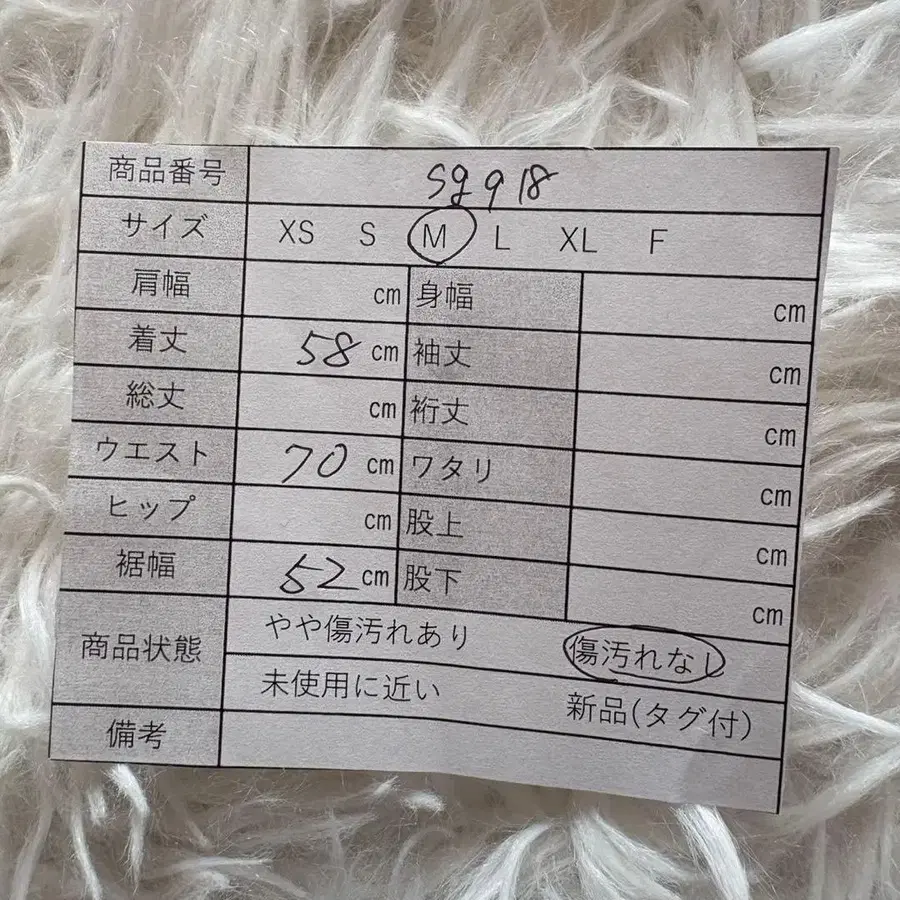 商品番号 sg918
サイズ XS S M L XL F
肩幅 cm 身幅 cm
着丈 58 cm 袖丈 cm
総丈 cm 裄丈 cm
ウエスト 70 cm ワタリ cm
ヒップ cm 股上 cm
裾幅 52 cm 股下 cm
商品状態 やや傷汚れあり 傷汚れなし
未使用に近い 新品(タグ付)
備考